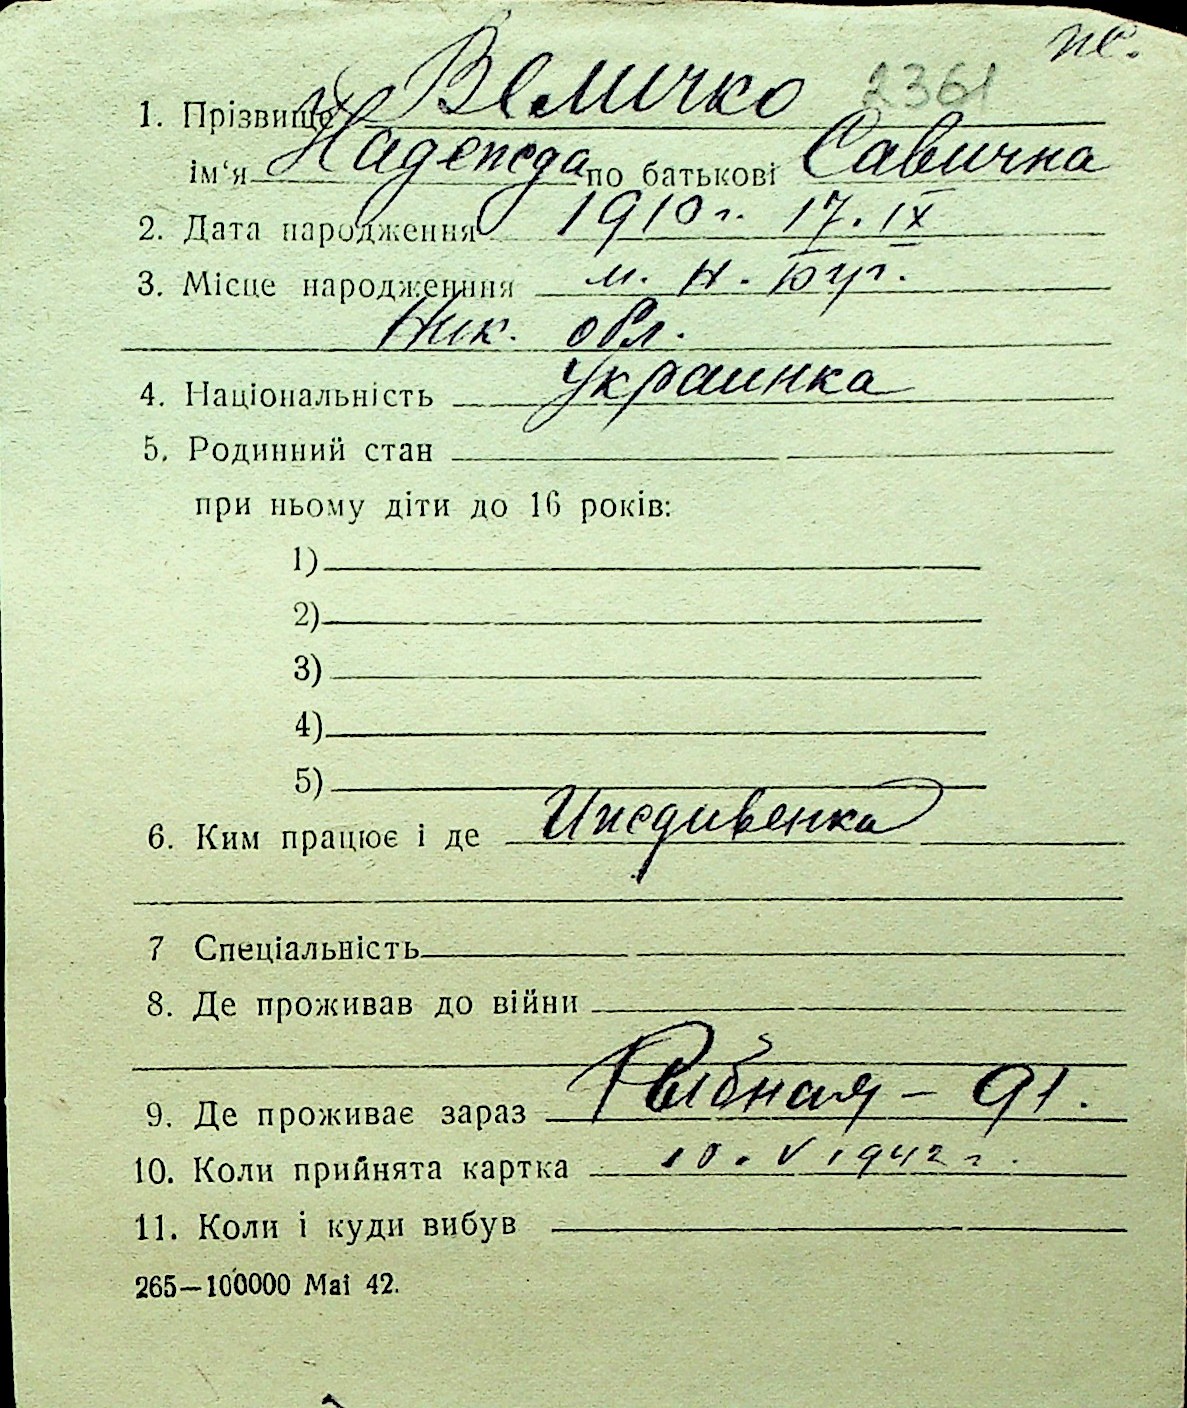 пс.
2361
1. Прізвище Величко
ім‘я Надежда по батькові Савична
2. Дата народження 1910 г. 17. IX
3. Місце народженння м. Н. Буг.
Ник. обл.
4. Національність украинка
5. Родинний стан
при ньому діти до 16 років:
1)
2)
3)
4)
5)
6. Ким працює і де Иждивенка
7 Спеціальність
8. Де проживав до війни
9. Де проживає зараз Рыбная – 91.
10. Коли прийнята картка 10. V 1942 г.
11. Коли і куди вибув
265—100000 Mai 42.